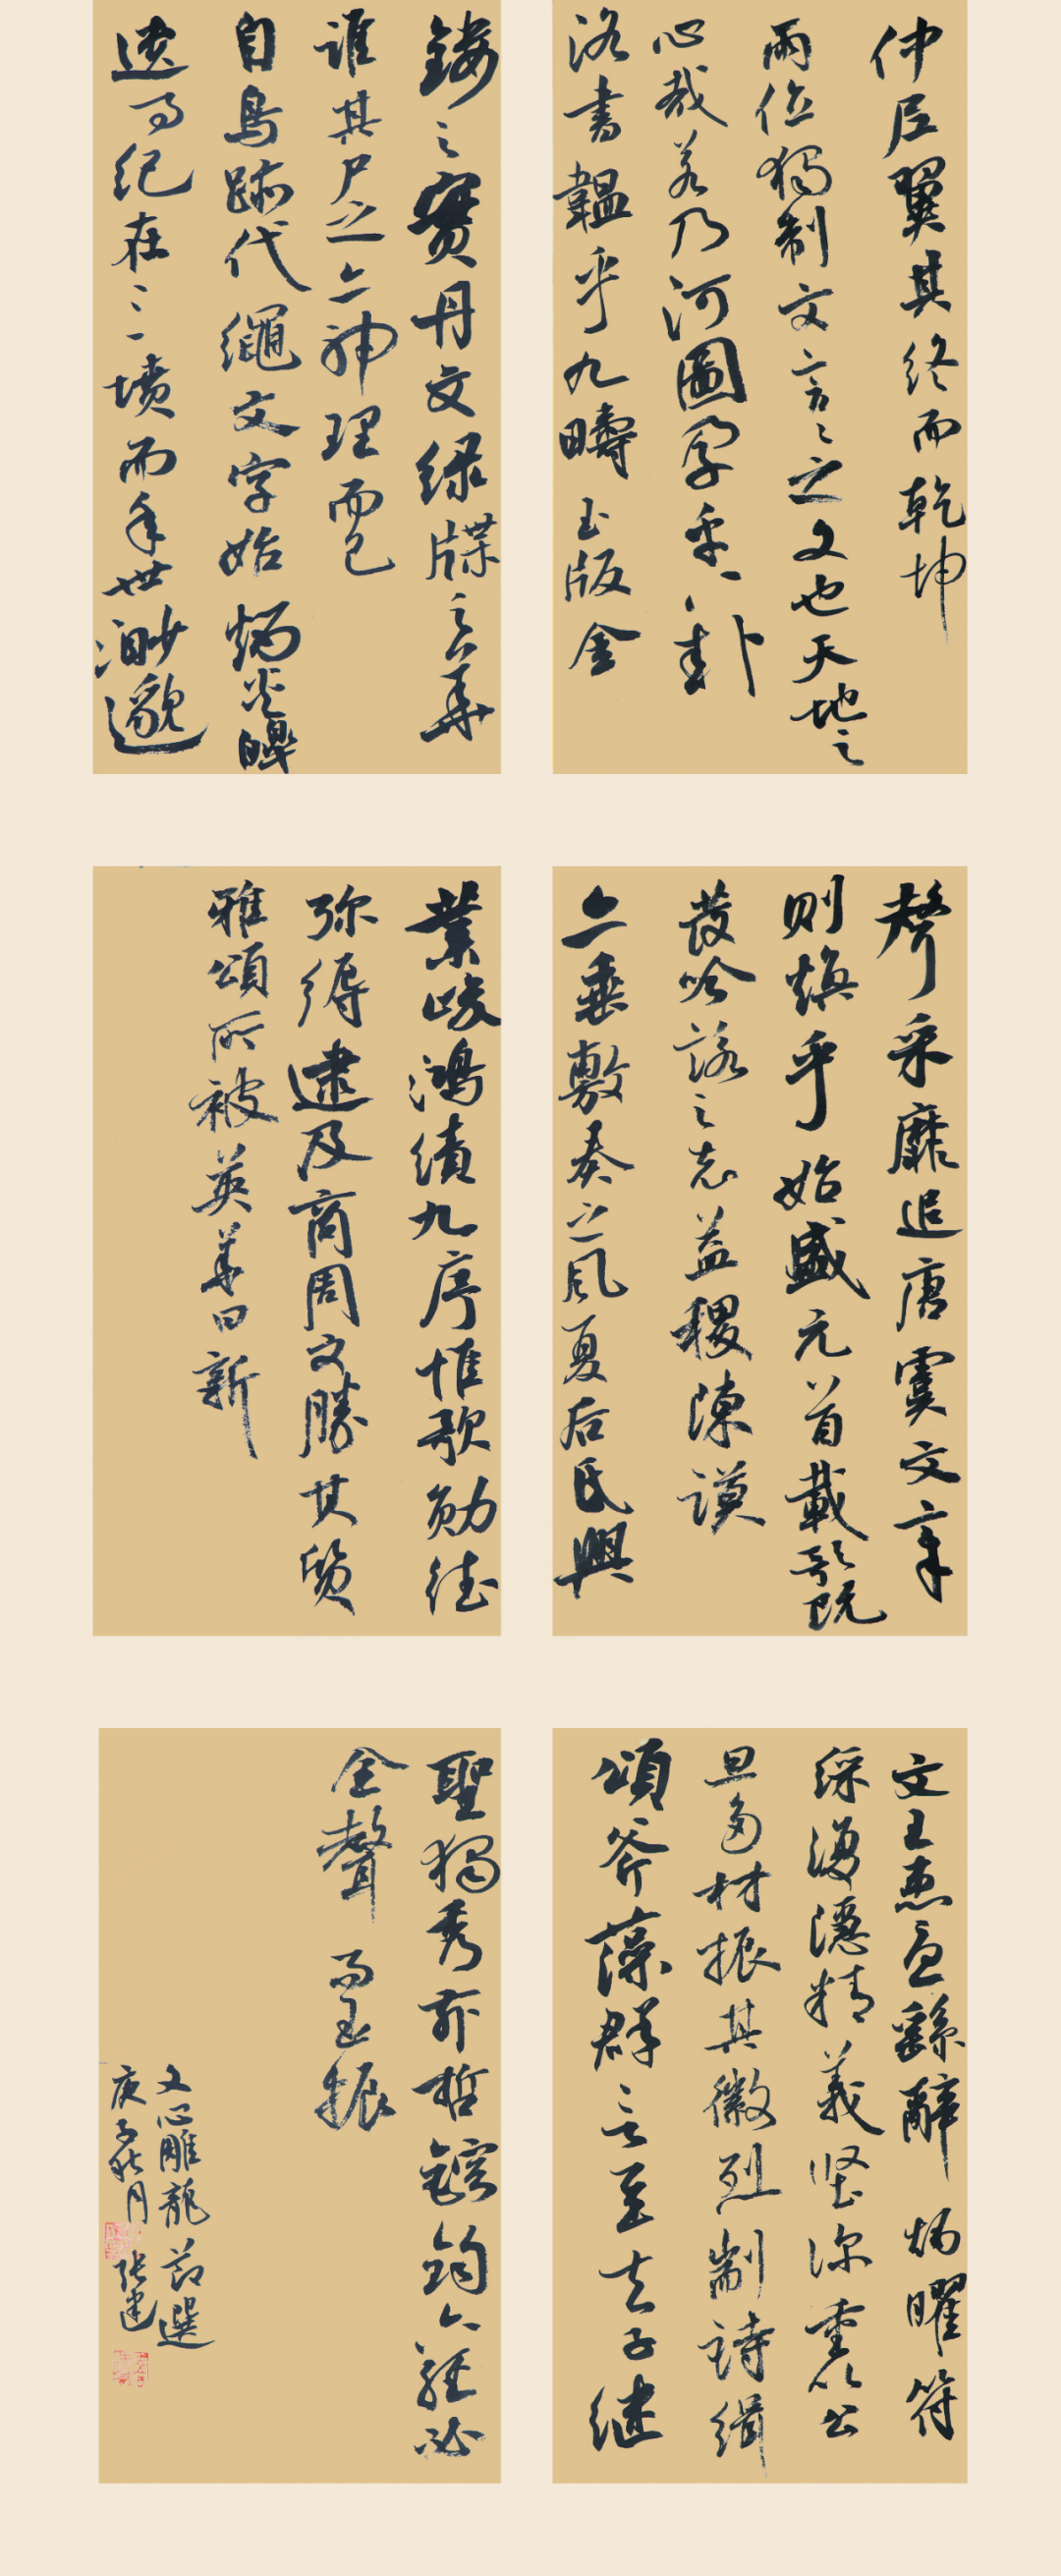 仲尼翼其終而乾坤
兩位獨制文言言之文也天地之
心哉若乃河圖孕乎八卦
洛書韞乎九疇玉版金
鏤之實丹文緑牒之華
誰其尸之亦神理而已
自鳥跡代繩文字始炳炎皥
遺事紀在三墳而年世渺邈
聲采靡追唐虞文章
則煥乎始盛元首載歌既
發吟詠之志益稷陳謨
亦垂敷奏之風夏后氏興
業峻鴻績九序惟歌勛德
弥縟逮及商周文勝其质
雅頌所被英華日新
文王患憂繇辭炳曜符
綵複隱精義堅深重以公
旦多材振其徽烈剬詩緝
頌斧藻群言至夫子继
聖獨秀前哲鎔鈞六經必
金聲而玉振
文心雕龍節選
庚子秋月 張建